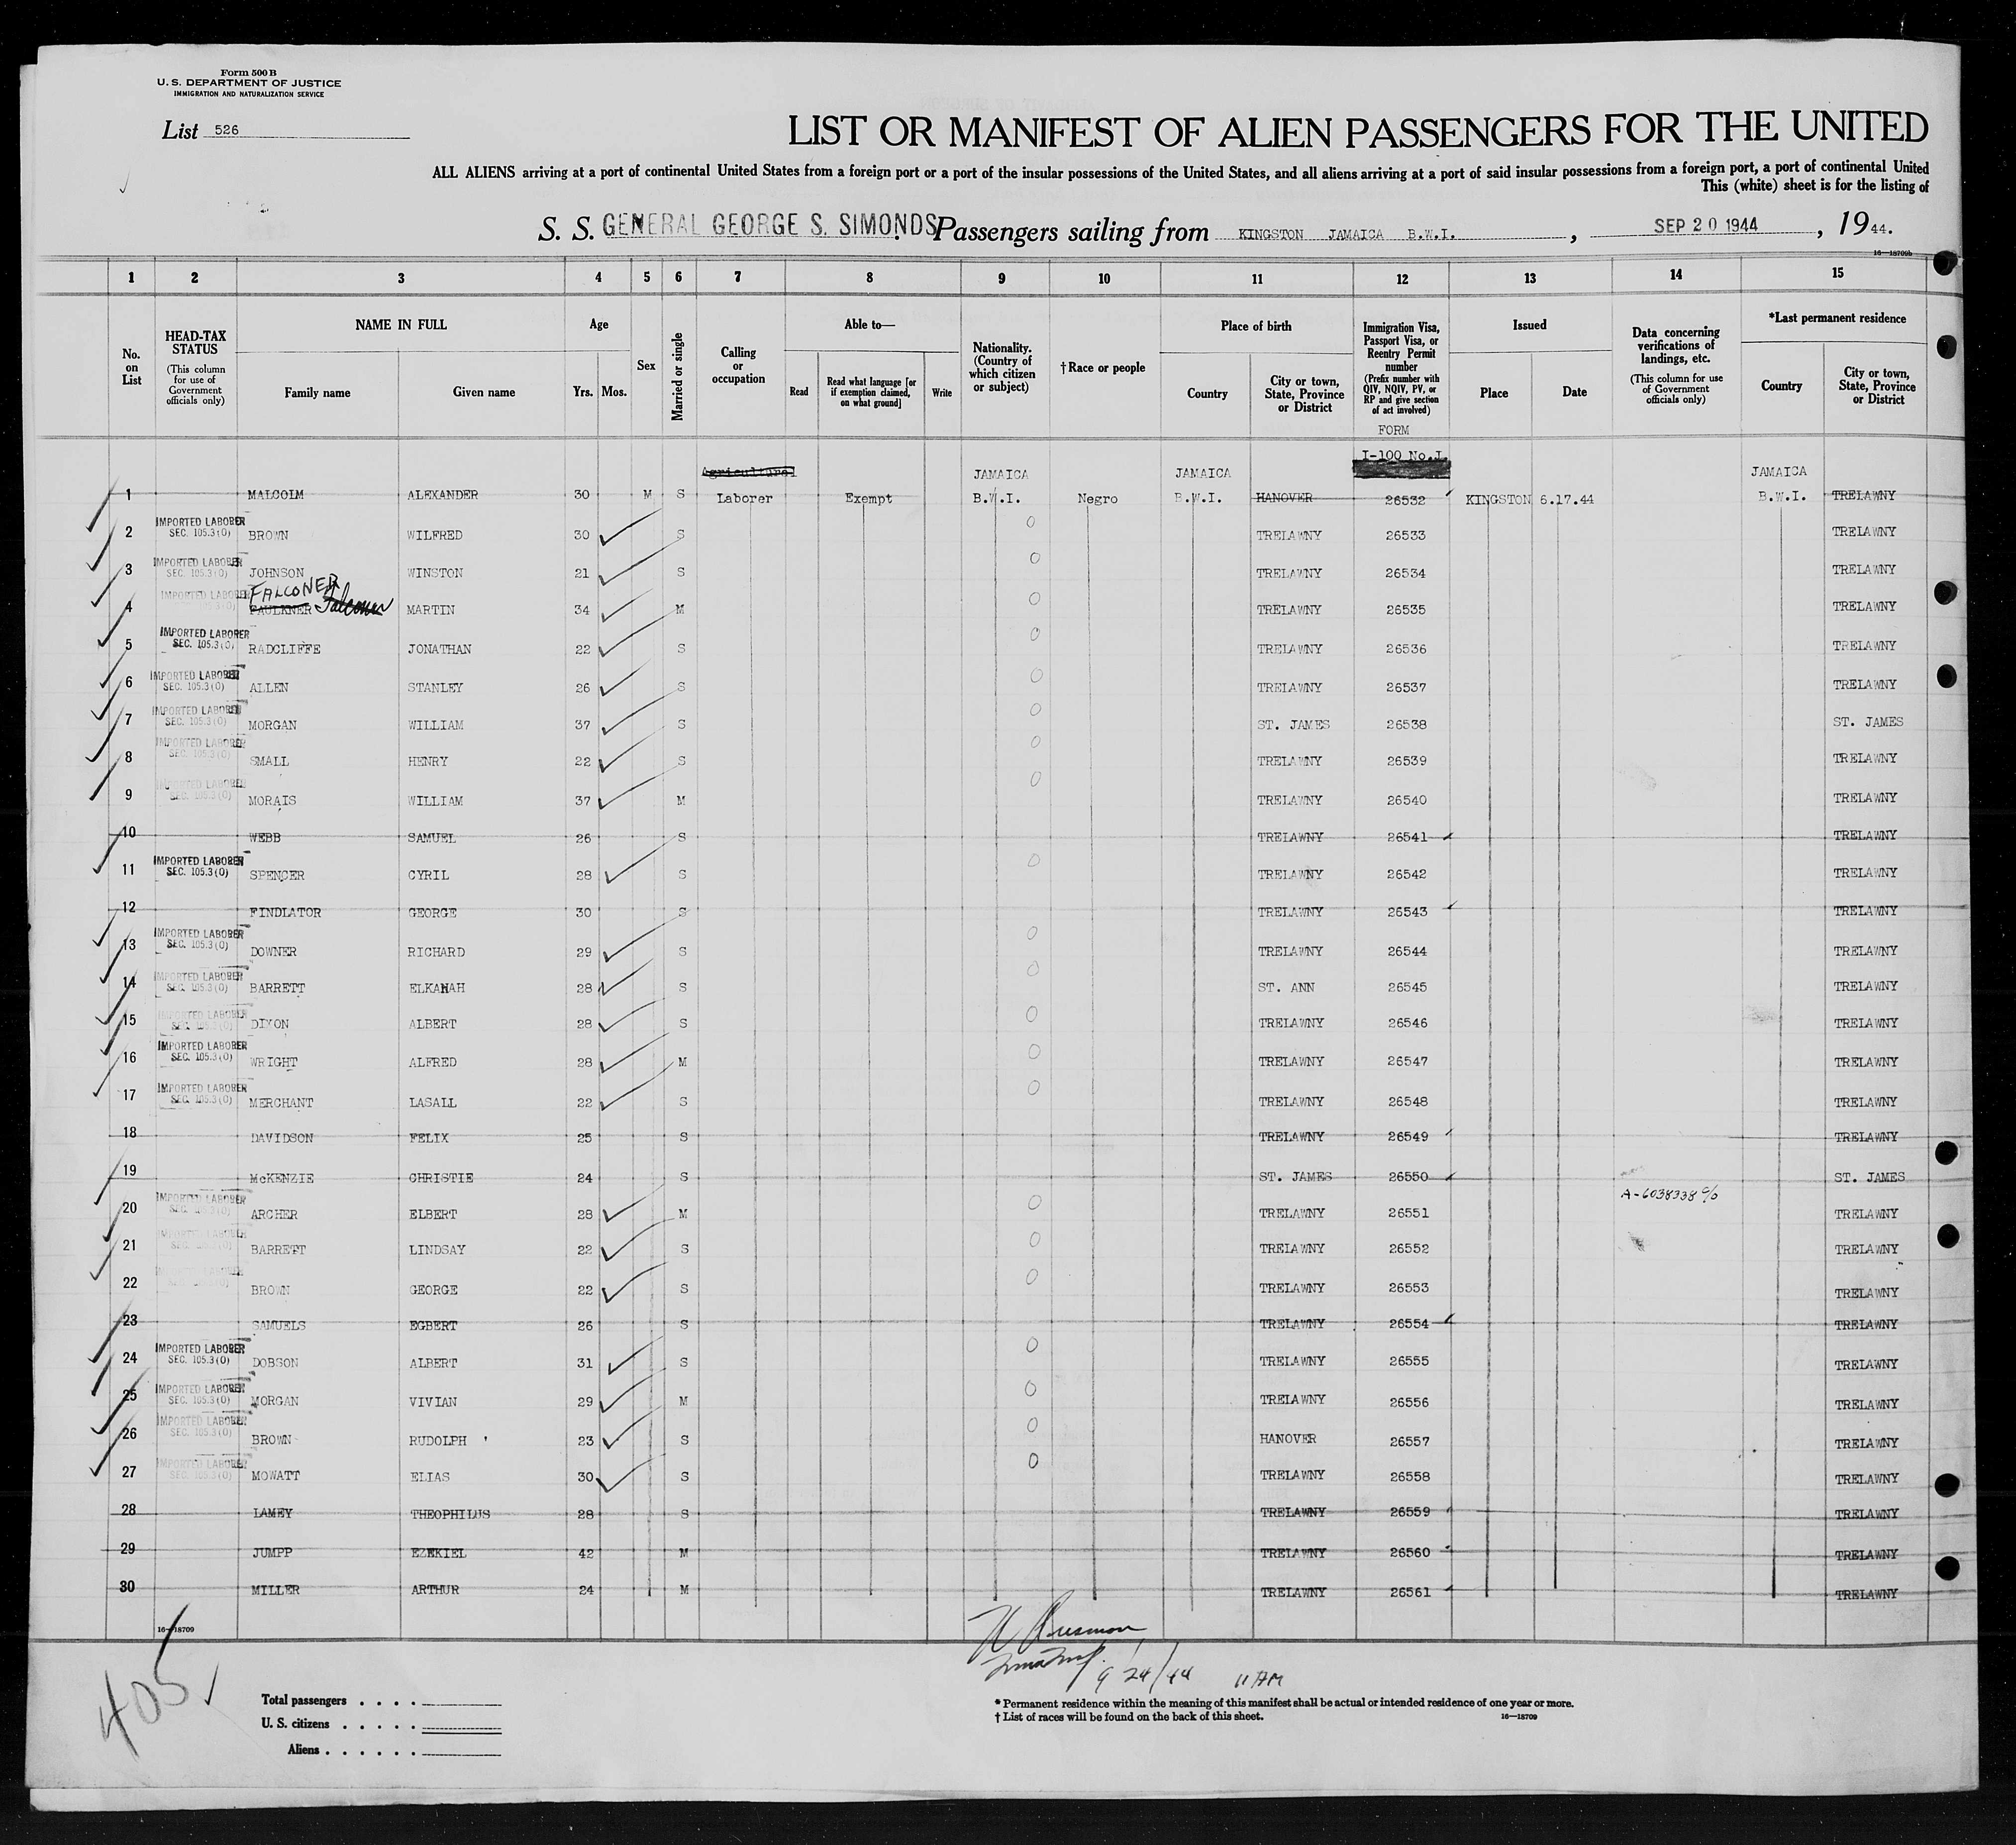 Form 500 B
U. S. DEPARTMENT OF JUSTICE
IMMIGRATION AND NATURALIZATION SERVICE
List 526
LIST OR MANIFEST OF ALIEN PASSENGERS FOR THE UNITED
ALL ALIENS arriving at a port of continental United States from a foreign port or a port of the insular possessions of the United States, and all aliens arriving at a port of said insular possessions from a foreign port, a port of continental United
This (white) sheet is for the listing of
S. S. GENERAL GEORGE S. SIMONDS. Passengers sailing from KINGSTON JAMAICA B.W.I. , SEP 20 1944 , 1944.
16—18709b
1 2 3 4 5 6 7 8 9 10 11 12 13 14 15
No. on List
HEAD-TAX STATUS (This column for use of Government officials only)
NAME IN FULL
Family name Given name
Age
Yrs. Mos.
Sex
Married or single
Calling or occupation
Able to—
Read
Read what language [or if exemption claimed, on what ground]
Write
Nationality. (Country of which citizen or subject)
†Race or people
Place of birth
Country
City or town, State, Province or District
Immigration Visa, Passport Visa, or Reentry Permit number (Prefix number with QIV, NQIV, PV, or RP and give section of act involved)
FORM
I-100 No.J.
Issued
Place Date
Data concerning verifications of landings, etc. (This column for use of Government officials only)
*Last permanent residence
Country
City or town, State, Province or District
Agricultural JAMAICA JAMAICA JAMAICA
1 MALCOLM ALEXANDER 30 M S Laborer Exempt B.W.I. Negro B.W.I. HANOVER 26532 KINGSTON 6.17.44 B.W.I. TRELAWNY
2 IMPORTED LABORER SEC. 105.3(0) BROWN WILFRED 30 S 0 TRELAWNY 26533 TRELAWNY
3 IMPORTED LABORER SEC. 105.3(0) JOHNSON WINSTON 21 S 0 TRELAWNY 26534 TRELAWNY
FALCONER
4 IMPORTED LABORER SEC. 105.3(0) FAULKNER Falconer MARTIN 34 M 0 TRELAWNY 26535 TRELAWNY
5 IMPORTED LABORER SEC. 105.3(0) RADCLIFFE JONATHAN 22 S 0 TRELAWNY 26536 TRELAWNY
6 IMPORTED LABORER SEC. 105.3(0) ALLEN STANLEY 26 S 0 TRELAWNY 26537 TRELAWNY
7 IMPORTED LABORER SEC. 105.3(0) MORGAN WILLIAM 37 S 0 ST. JAMES 26538 ST. JAMES
8 IMPORTED LABORER SEC. 105.3(0) SMALL HENRY 22 S 0 TRELAWNY 26539 TRELAWNY
9 IMPORTED LABORER SEC. 105.3(0) MORAIS WILLIAM 37 M 0 TRELAWNY 26540 TRELAWNY
10 WEBB SAMUEL 26 S TRELAWNY 26541 TRELAWNY
11 IMPORTED LABORER SEC. 105.3(0) SPENCER CYRIL 28 S 0 TRELAWNY 26542 TRELAWNY
12 FINDLATOR GEORGE 30 S TRELAWNY 26543 TRELAWNY
13 IMPORTED LABORER SEC. 105.3(0) DOWNER RICHARD 29 S 0 TRELAWNY 26544 TRELAWNY
14 IMPORTED LABORER SEC. 105.3(0) BARRETT ELKANAH 28 S 0 ST. ANN 26545 TRELAWNY
15 IMPORTED LABORER SEC. 105.3(0) DIXON ALBERT 28 S 0 TRELAWNY 26546 TRELAWNY
16 IMPORTED LABORER SEC. 105.3(0) WRIGHT ALFRED 28 M 0 TRELAWNY 26547 TRELAWNY
17 IMPORTED LABORER SEC. 105.3(0) MERCHANT LASALL 22 S 0 TRELAWNY 26548 TRELAWNY
18 DAVIDSON FELIX 25 S TRELAWNY 26549 TRELAWNY
19 McKENZIE CHRISTIE 24 S ST. JAMES 26550 ST. JAMES
20 IMPORTED LABORER SEC. 105.3(0) ARCHER ELBERT 28 M 0 TRELAWNY 26551 A-6038338 c/o TRELAWNY
21 IMPORTED LABORER SEC. 105.3(0) BARRETT LINDSAY 22 S 0 TRELAWNY 26552 TRELAWNY
22 IMPORTED LABORER SEC. 105.3(0) BROWN GEORGE 22 S 0 TRELAWNY 26553 TRELAWNY
23 SAMUELS EGBERT 26 S TRELAWNY 26554 TRELAWNY
24 IMPORTED LABORER SEC. 105.3(0) DOBSON ALBERT 31 S 0 TRELAWNY 26555 TRELAWNY
25 IMPORTED LABORER SEC. 105.3(0) MORGAN VIVIAN 29 M 0 TRELAWNY 26556 TRELAWNY
26 IMPORTED LABORER SEC. 105.3(0) BROWN RUDOLPH 23 S 0 HANOVER 26557 TRELAWNY
27 IMPORTED LABORER SEC. 105.3(0) MOWATT ELIAS 30 S 0 TRELAWNY 26558 TRELAWNY
28 LAMEY THEOPHILUS 28 S TRELAWNY 26559 TRELAWNY
29 JUMPP EZEKIEL 42 M TRELAWNY 26560 TRELAWNY
30 MILLER ARTHUR 24 M TRELAWNY 26561 TRELAWNY
16—18709
9/24/44 11 AM
405
Total passengers . . . .
U. S. citizens . . . . .
Aliens . . . . . .
* Permanent residence within the meaning of this manifest shall be actual or intended residence of one year or more.
† List of races will be found on the back of this sheet.
16—18709